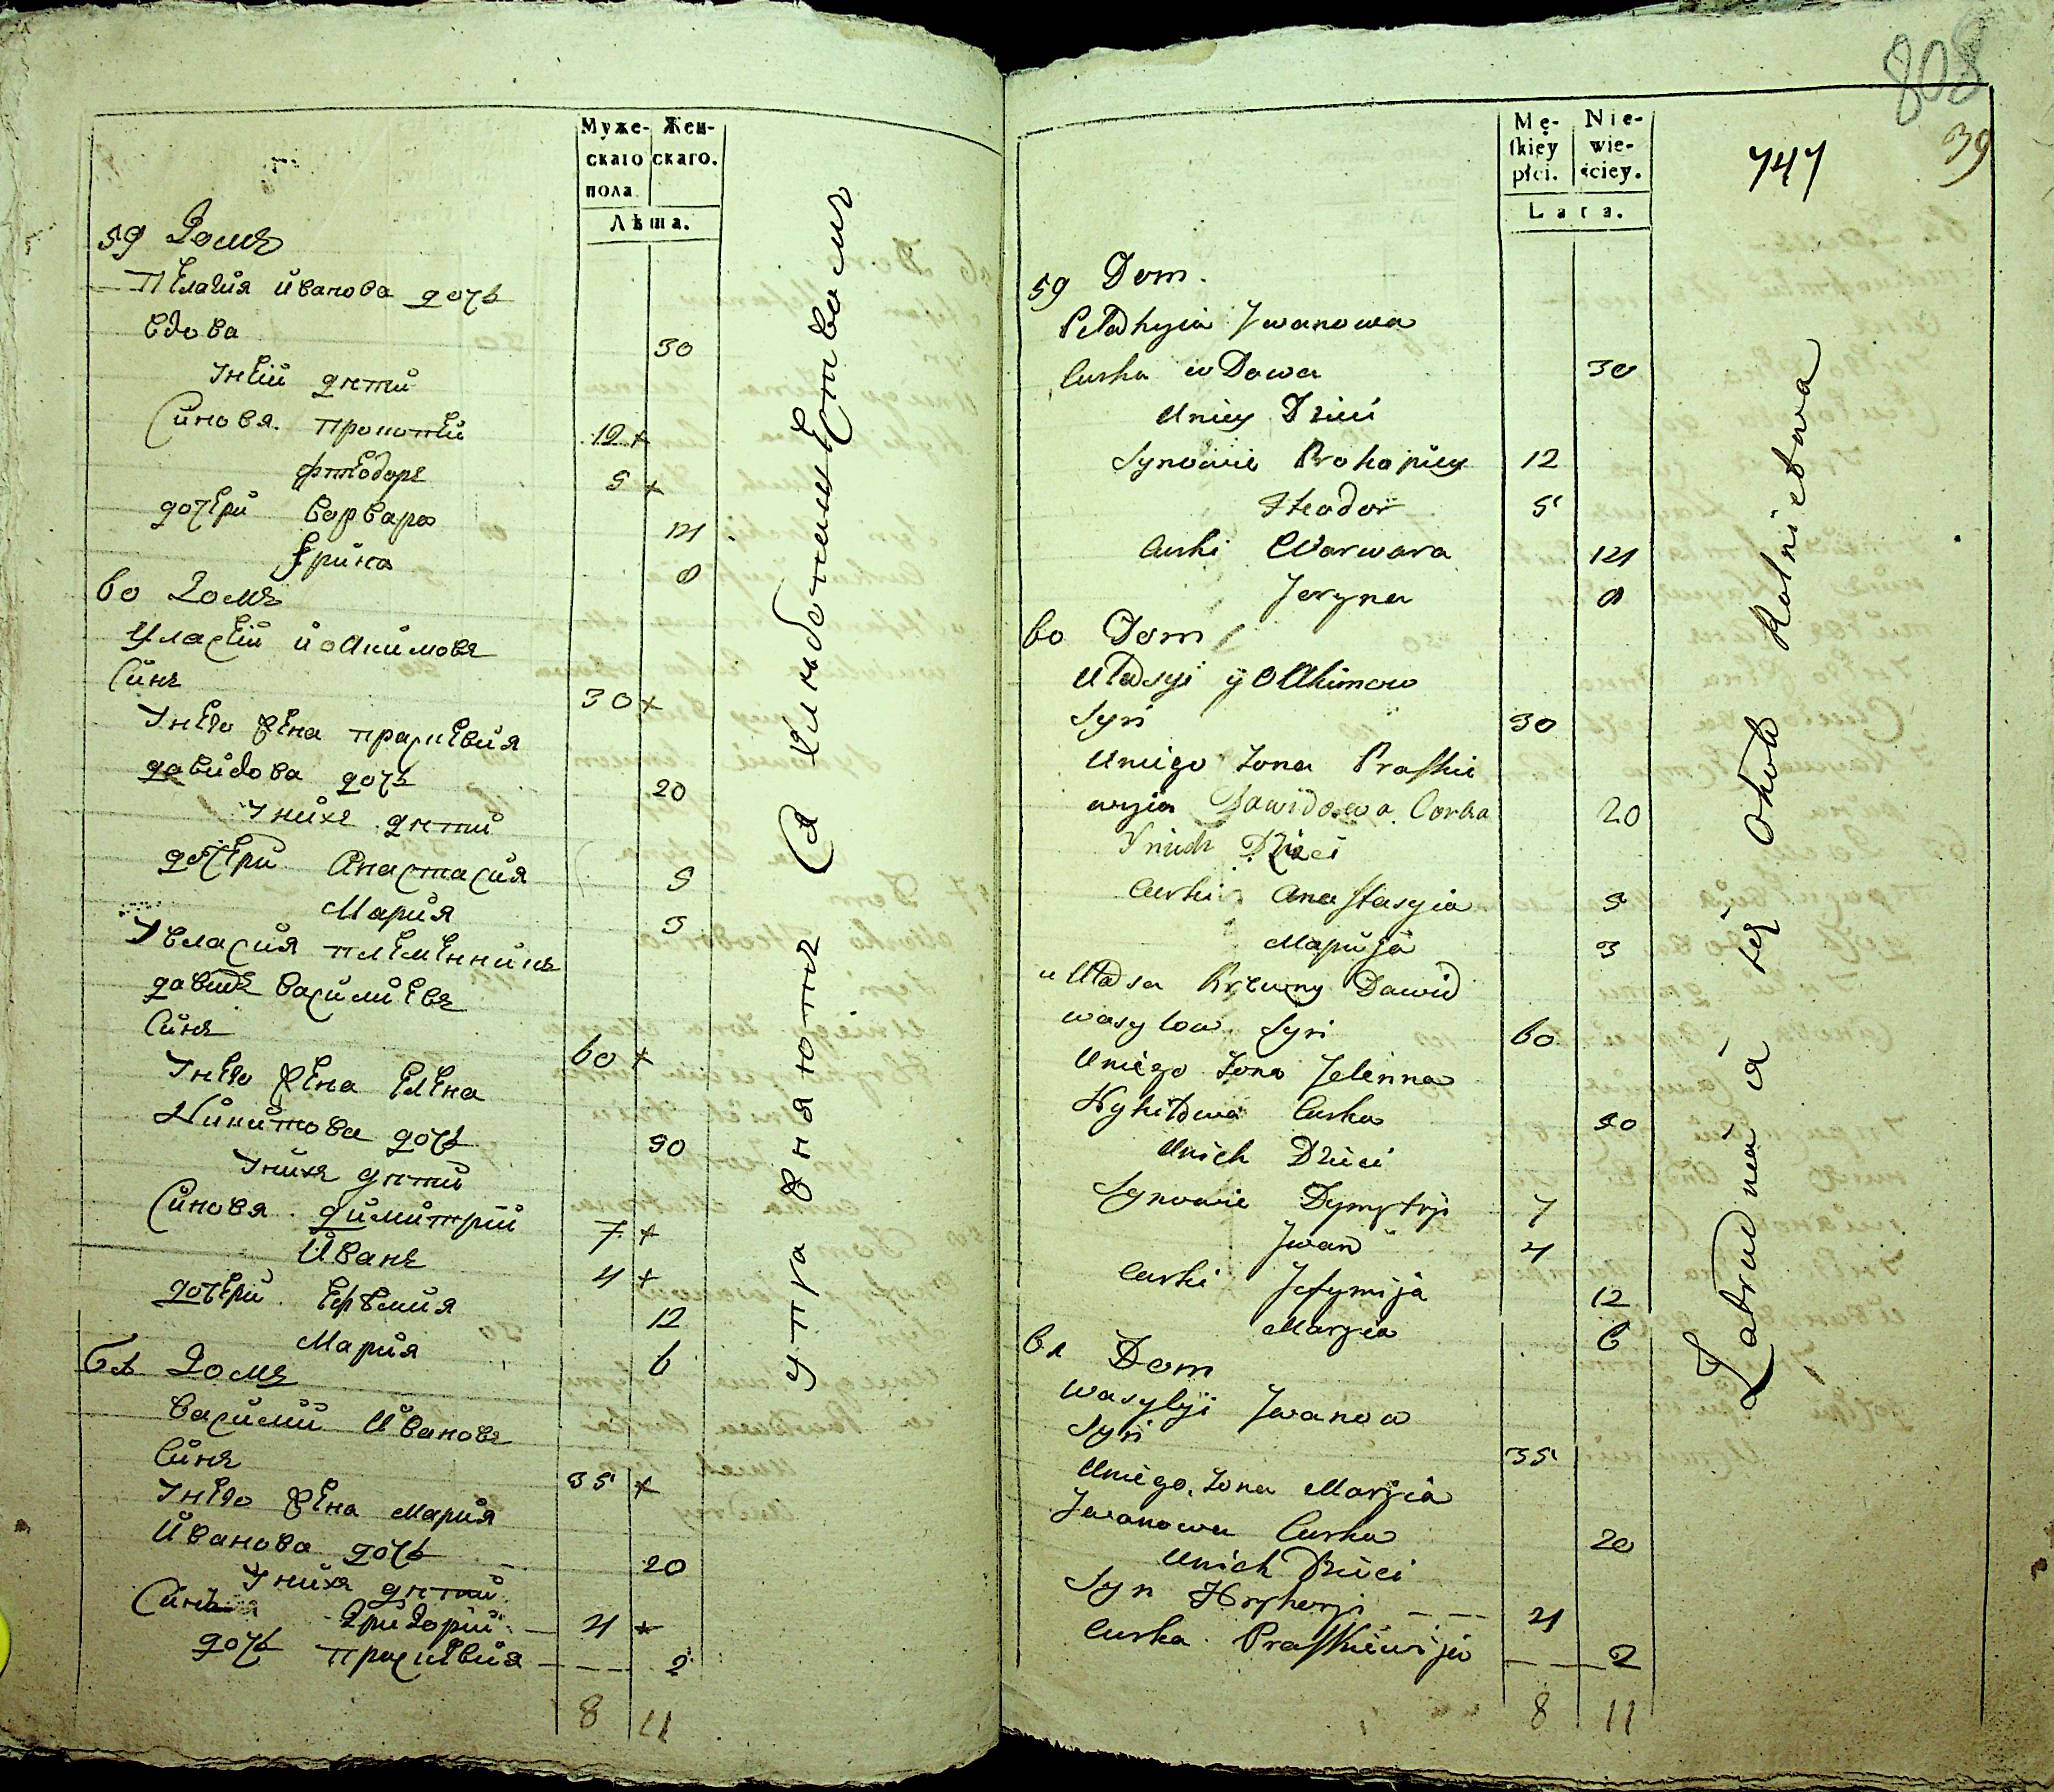 Муже- Жен-
скаго скаго.
пола
Лѣта.
59 Домъ
Пелагия Иванова дочь
вдова 30
Унеи дѣти
Синовя Прокопѣй 12 +
Фтеодоръ 5 +
дочери Варвара 14
Ерина 8
60 Домъ
Уласий Иоакимовъ
Синъ 30 +
Унего жена Праскевия
давидова дочь 20
Унихъ дѣти
дочери Анастасия 5
Мария 3
Увласия племенникъ
давидъ Василиевъ
Синъ 60 +
Унего жена Елена
Никитова дочь 50
Унихъ дѣти
Синовя димитрий 7 +
Иванъ 4 +
дочери Ефемия 12
Мария 6
61 Домъ
Василий Ивановъ
Синъ 35 +
Унего жена Мария
Иванова дочь 20
Унихъ дѣти
Синъ Григорий 4 +
дочь Праскевия 2
8 11
упражняются в хлѣбопашествомъ
808
39
747
Mę- Nie-
ſkiey wie-
płci. ściey.
Lata.
59 Dom.
Pelahyia Jwanowa
Curka wDowa 30
Uniey Dzieci
Synowie Prokopiey 12
Fteodor 5
Curki Warwara 14
Jeryna 8
60 Dom
Ulasyi yoakimow
Syn 30
Uniego Zona Praſkie
wyia Dawidowa Corka 20
Ynich Dzieci
Curki Anaſtasyia 5
Maryja 3
u Ulasa Krewny Dawid
wasylow Syn 60
Uniego Zona Jelenna
Nykitowa Curka 50
Unich Dzieci
Synowie Dymytryi 7
Jwan 4
Curki Jefymija 12
Maryia 6
61 Dom
Wasylyi Jwanow
Syn 35
Uniego Zona Maryia
Jwanowa Curka 20
Unich Dzieci
Syn Hryhoryi 4
Curka Praſkiewija 2
8 11
Zatrudnia się około Rolnictwa